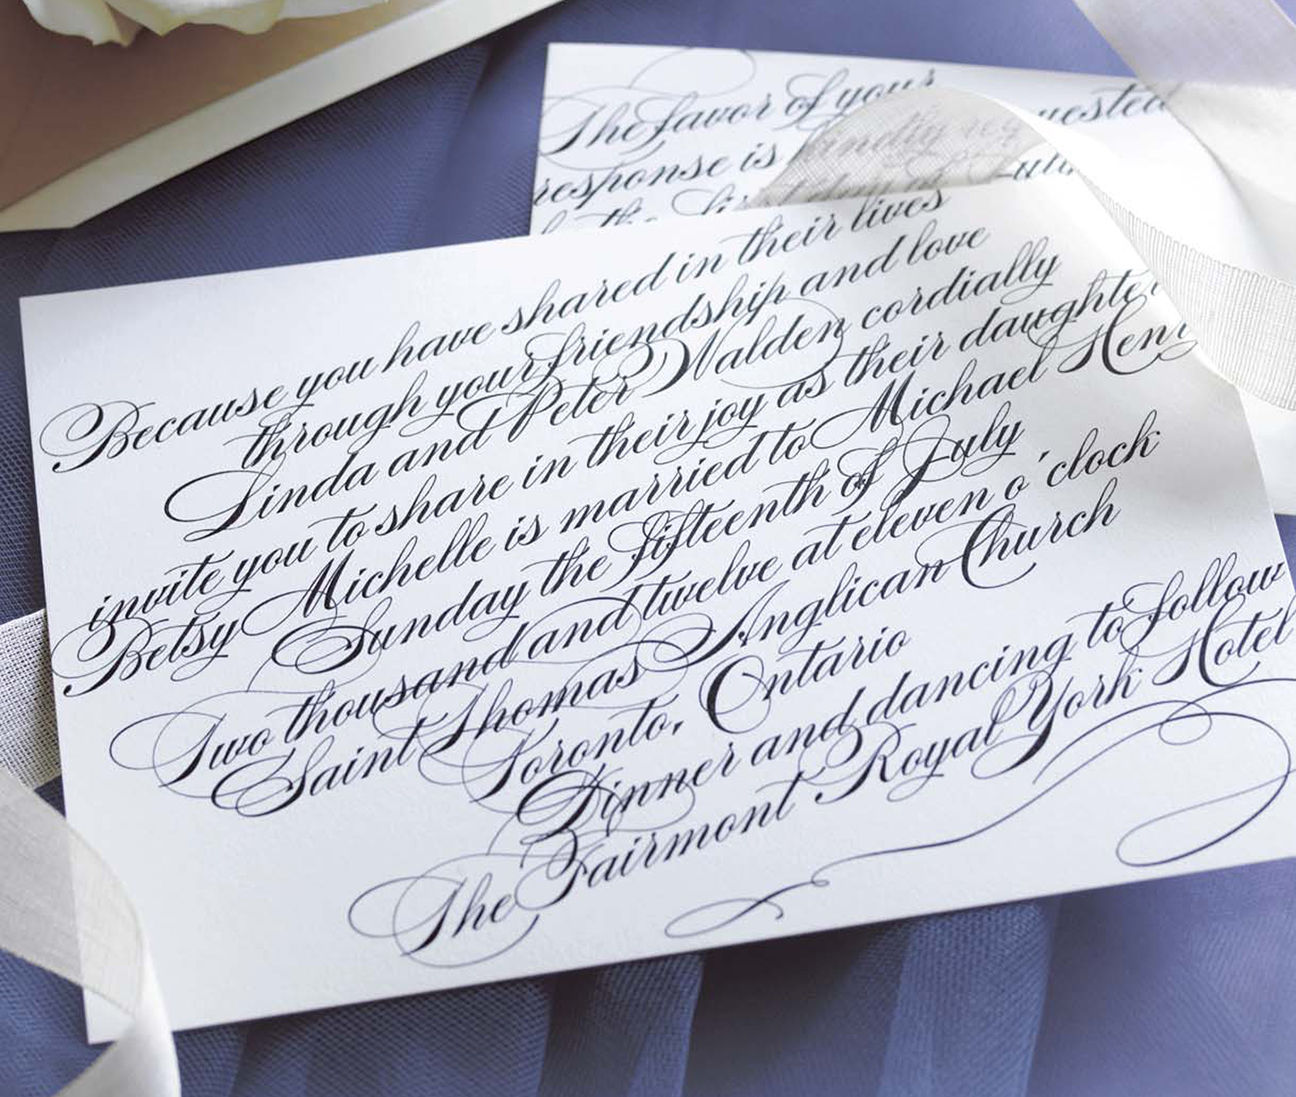 The favor of your
response is kindly requested
by the first day of
Because you have shared in their lives
through your friendship and love
Linda and Peter Walden cordially
invite you to share in their joy as their daughter
Betsy Michelle is married to Michael
Sunday the fifteenth of July
Two thousand and twelve at eleven o'clock
Saint Thomas Anglican Church
Toronto, Ontario
Dinner and dancing to follow
The Fairmont Royal York Hotel